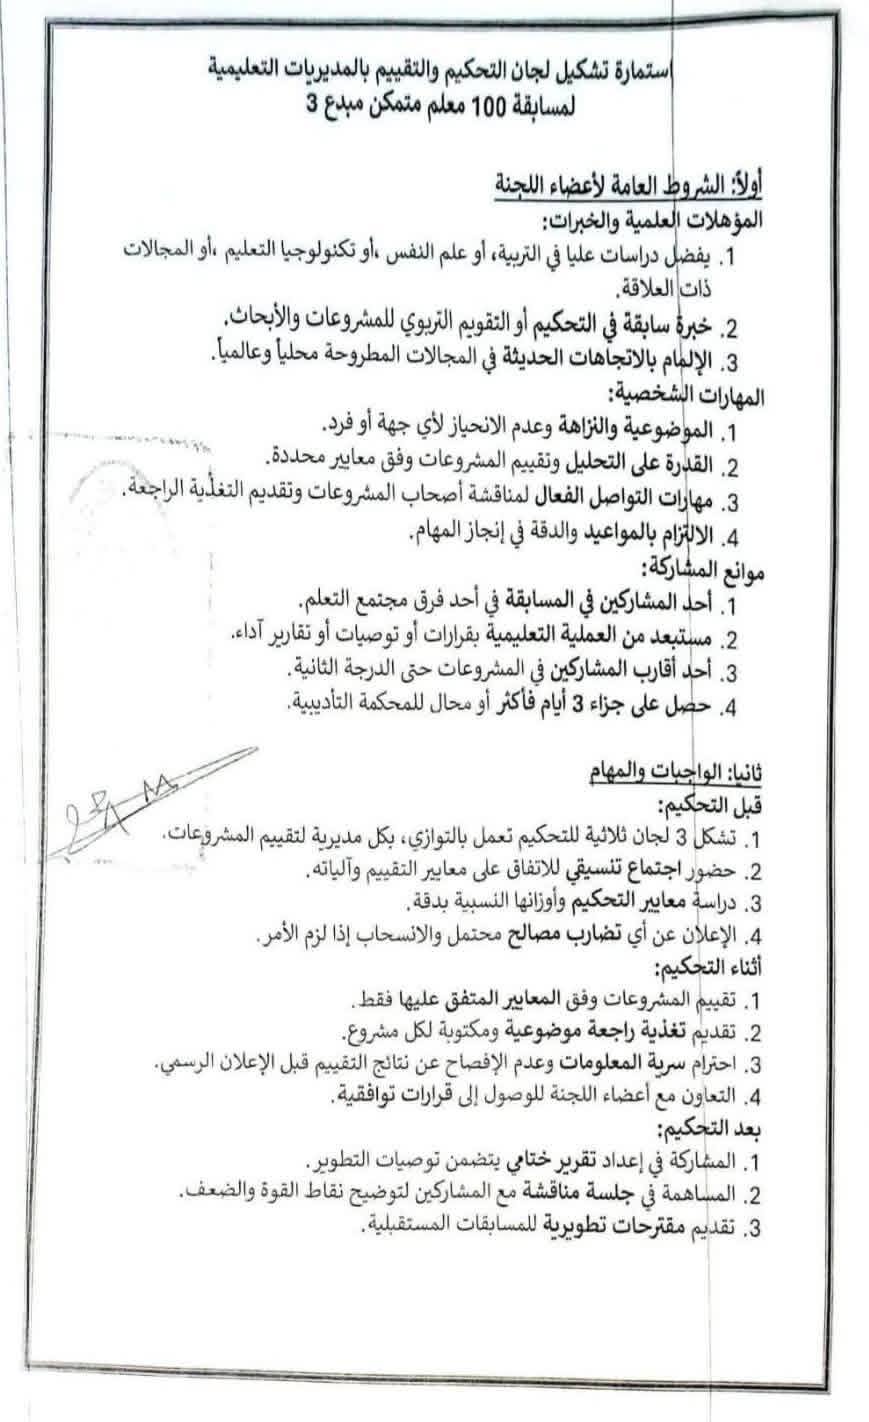 استمارة تشكيل لجان التحكيم والتقييم بالمديريات التعليمية
لمسابقة 100 معلم متمكن مبدع 3
أولاً: الشروط العامة لأعضاء اللجنة
المؤهلات العلمية والخبرات:
1. يفضل دراسات عليا في التربية، أو علم النفس ،أو تكنولوجيا التعليم ،أو المجالات
ذات العلاقة.
2. خبرة سابقة في التحكيم أو التقويم التربوي للمشروعات والأبحاث.
3. الإلمام بالاتجاهات الحديثة في المجالات المطروحة محلياً وعالمياً.
المهارات الشخصية:
1. الموضوعية والنزاهة وعدم الانحياز لأي جهة أو فرد.
2. القدرة على التحليل وتقييم المشروعات وفق معايير محددة.
3. مهارات التواصل الفعال لمناقشة أصحاب المشروعات وتقديم التغذية الراجعة.
4. الالتزام بالمواعيد والدقة في إنجاز المهام.
موانع المشاركة:
1. أحد المشاركين في المسابقة في أحد فرق مجتمع التعلم.
2. مستبعد من العملية التعليمية بقرارات أو توصيات أو تقارير آداء.
3. أحد أقارب المشاركين في المشروعات حتى الدرجة الثانية.
4. حصل على جزاء 3 أيام فأكثر أو محال للمحكمة التأديبية.
ثانيا: الواجبات والمهام
قبل التحكيم:
1. تشكل 3 لجان ثلاثية للتحكيم تعمل بالتوازي، بكل مديرية لتقييم المشروعات.
2. حضور اجتماع تنسيقي للاتفاق على معايير التقييم وآلياته.
3. دراسة معايير التحكيم وأوزانها النسبية بدقة.
4. الإعلان عن أي تضارب مصالح محتمل والانسحاب إذا لزم الأمر.
أثناء التحكيم:
1. تقييم المشروعات وفق المعايير المتفق عليها فقط.
2. تقديم تغذية راجعة موضوعية ومكتوبة لكل مشروع.
3. احترام سرية المعلومات وعدم الإفصاح عن نتائج التقييم قبل الإعلان الرسمي.
4. التعاون مع أعضاء اللجنة للوصول إلى قرارات توافقية.
بعد التحكيم:
1. المشاركة في إعداد تقرير ختامي يتضمن توصيات التطوير.
2. المساهمة في جلسة مناقشة مع المشاركين لتوضيح نقاط القوة والضعف.
3. تقديم مقترحات تطويرية للمسابقات المستقبلية.